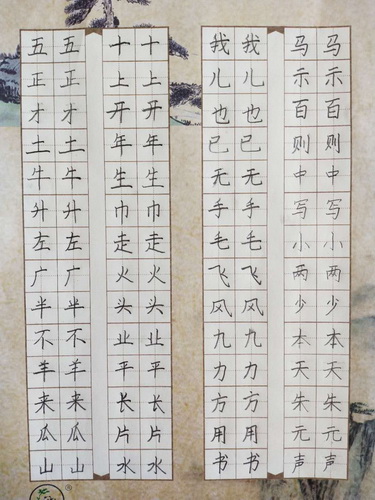 五五十十我我马马
正正上上儿儿示示
才才开开也也百百
土土年年已已则则
牛牛生生无无中中
升升巾巾手手写写
左左走走毛毛小小
广广火火飞飞两两
半半头头风风少少
不不业业九九本本
羊羊平平力力天天
来来长长方方朱朱
瓜瓜片片用用元元
山山水水书书声声